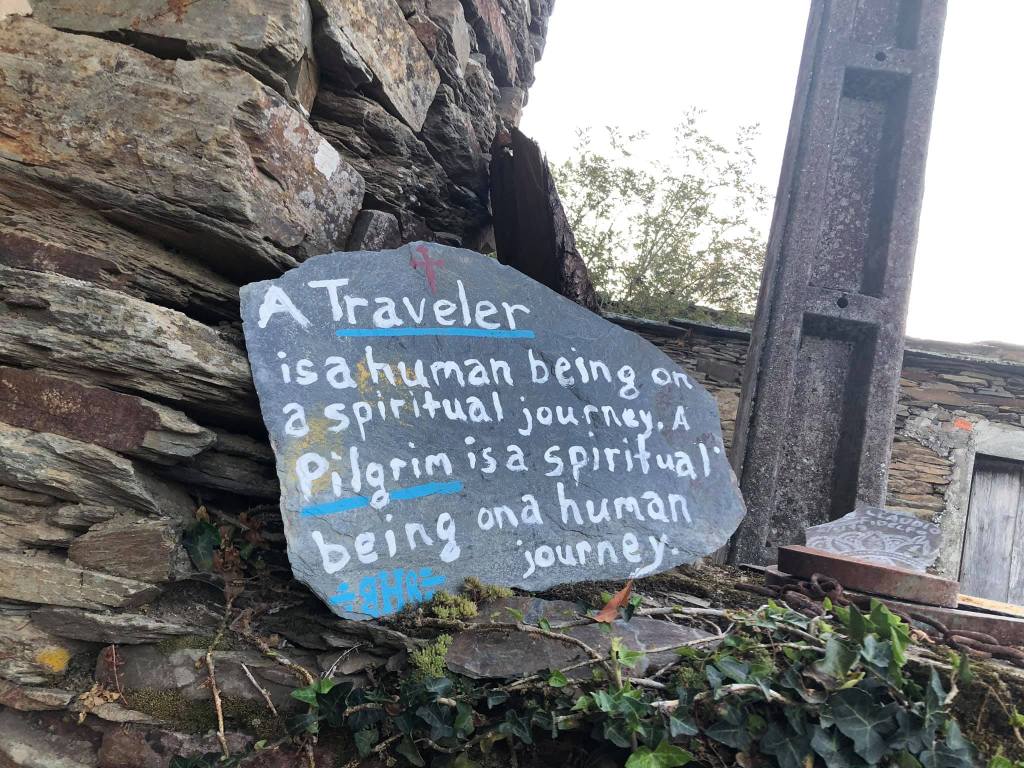 A Traveler
is a human being on
a spiritual journey. A
Pilgrim is a spiritual
being on a human
journey.